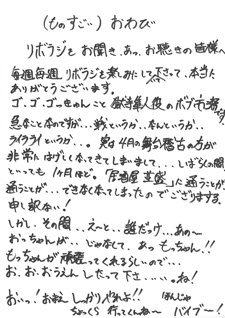 (ものすご) おわび
リボラジを お聞き、あっ、お聴きの皆様へ
毎週毎週、リボラジを楽しみにして下さって、本当に
ありがとうございます。
ゴ、ゴ、ゴーきゅんこと
のですが…、というか、本んというか、
ライクライというか…。4月の舞台稽古の方が
非常にはげしく本てきてしまいまして、…しばらくの間
といっても1ヶ月ほど。「居酒屋 」に通うことが
通うことが…できなくなてしまったのでございまする。
申し訳ない!
しかし、その間、、えーと…誰だっけ…あの〜
おっちゃんが…じゃなくて、あっもっちゃん!!
もっちゃんが頑張ってくれるらしいので…
お、お、おうえんしたって下さ……ね!
おいっ! おまえ しっかりやれよ!! ほんじゃ
ちょっくら 行ってくんね〜 バイブー!